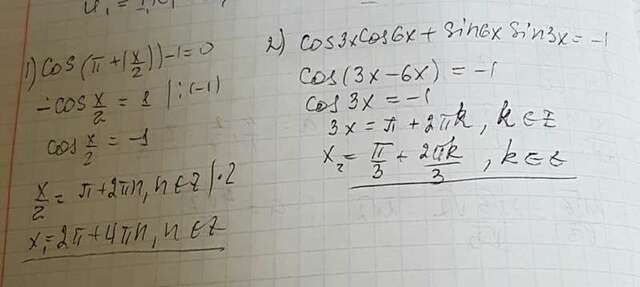 1) cos(π+(x/2))-1=0
-cos x/2 = 1 |:(-1)
cos x/2 = -1
x/2 = π+2πn, n∈Z |·2
x₁=2π+4πn, n∈Z
2) cos3xcos6x+sin6xsin3x=-1
cos(3x-6x)=-1
cos3x=-1
3x=π+2πk, k∈Z
x₂=π/3+2πk/3, k∈Z